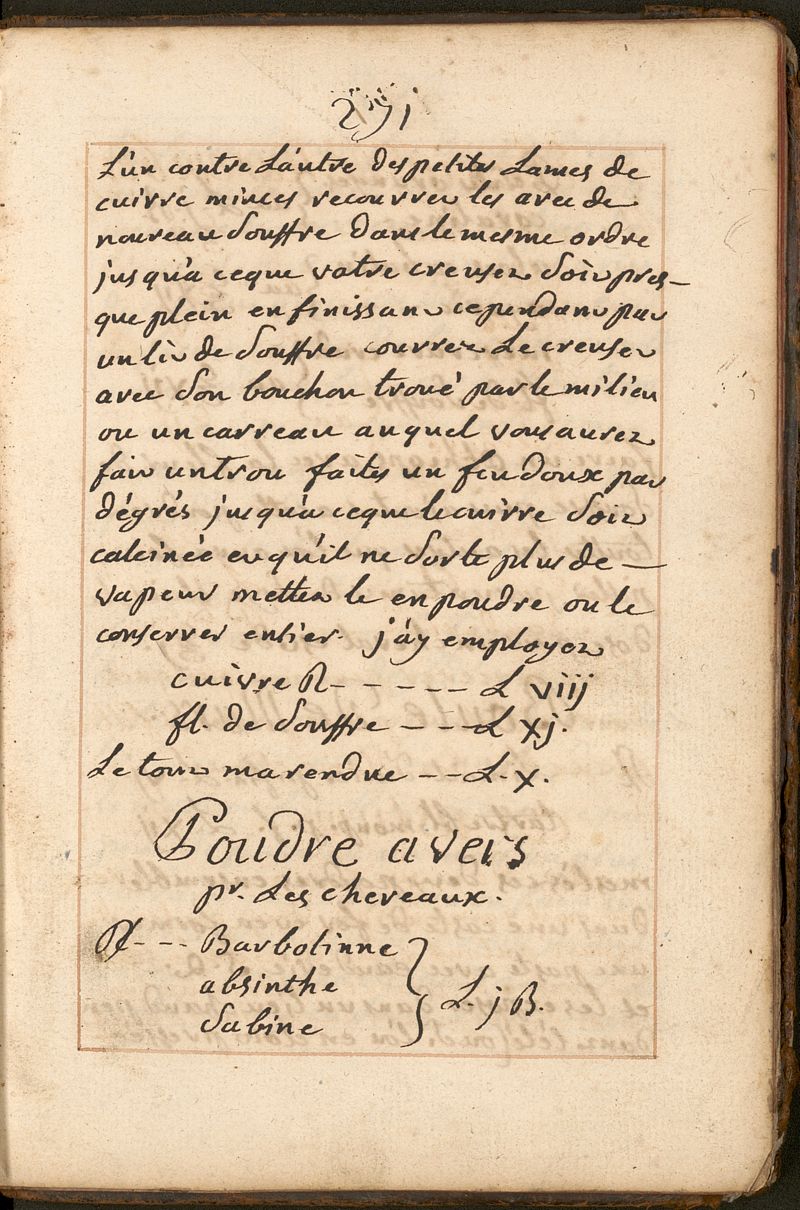 291
L'un contre L'autre des petites Lames de
cuivre minces recouvrez les avec de
nouveau Souffre dans le mesme ordre
jusqu'a ceque vostre creuset Soit pres-
que plein en finissant cependant par
un lit de Souffre couvrez Le creuset
avec Son bouchon troué par le milieu
ou un carreau auquel vous aurez
fait un trou faites un feu doux par
dégrés jusqu'a ceque le cuivre Soit
calcinée et qu'il ne Sorte plus de —
vapeur mettez le en poudre ou le
conserver entier. j'ay employez
cuivre R - - - - - L viij
fl. de Souffre - - - L xj.
Le tout ma rendue - - L. x.
Poudre a vers
pr. Les cheveaux.
℞ - - - Barbotinne
absinthe
Sabine
} L. j ß.